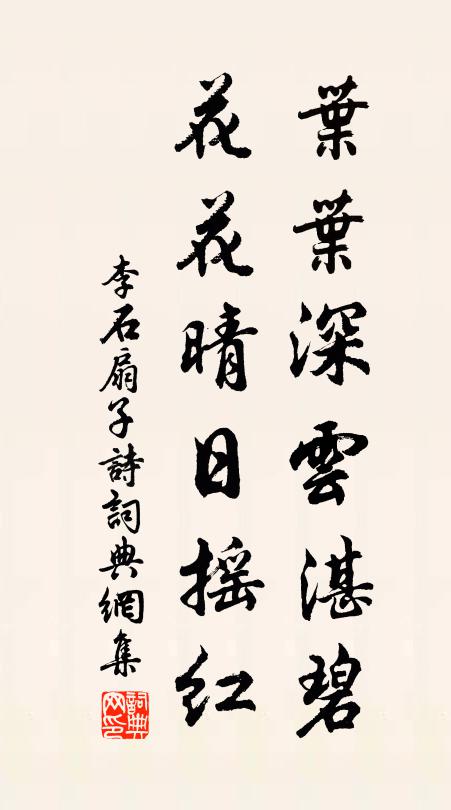 葉葉深雲湛碧
花花晴日摇红
李石扇子詩詞典網集
詞典网印